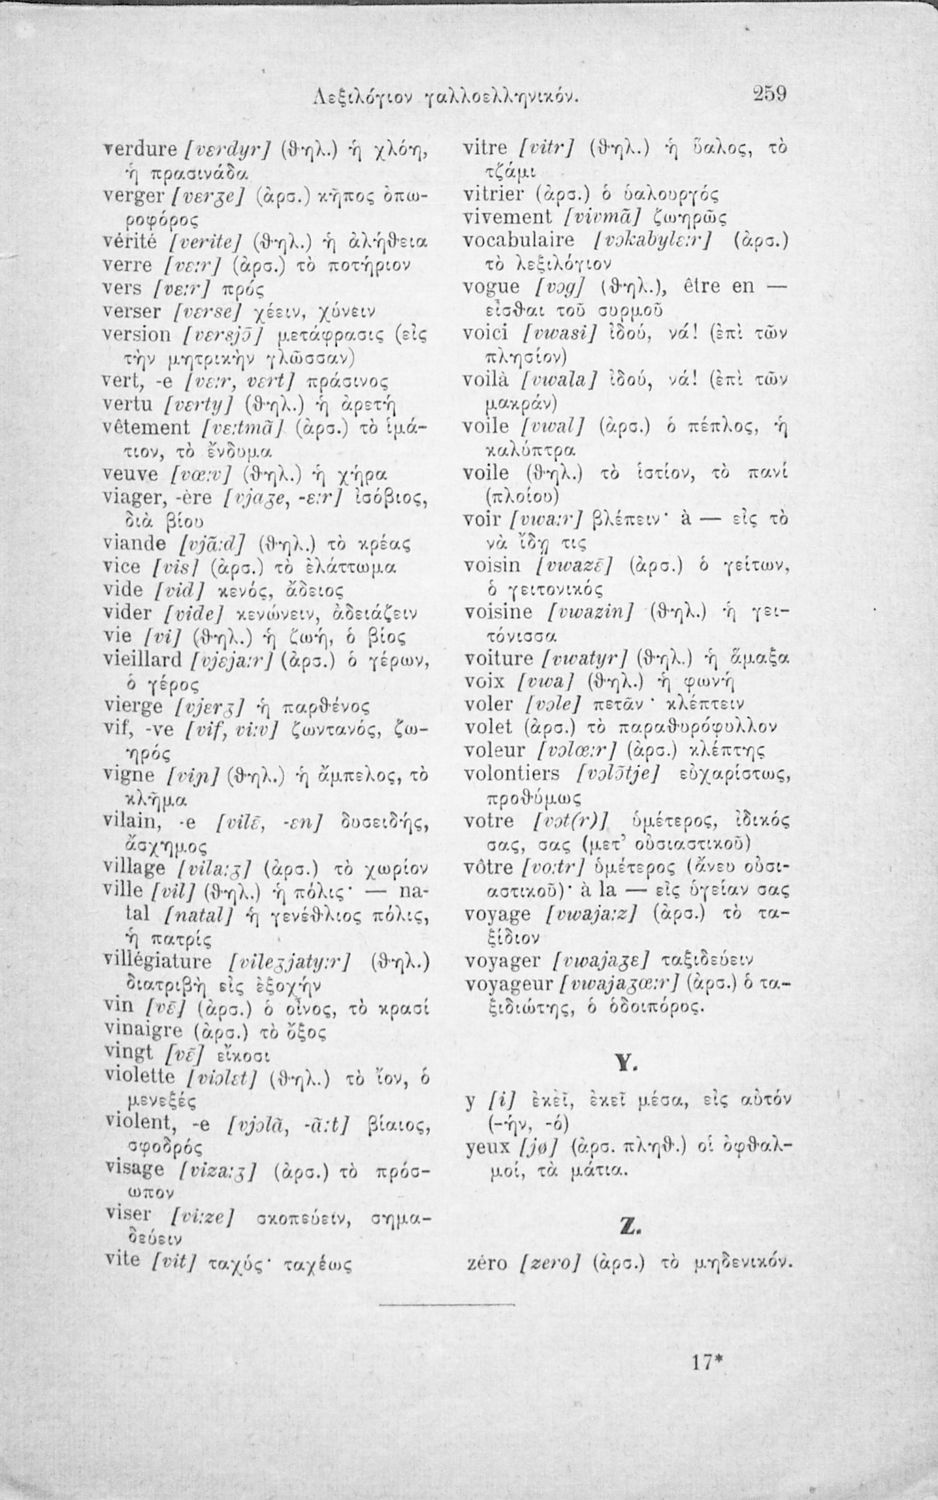 Λεξιλόγιον γαλλοελληνικόν. 259
verdure [vɛrdyr] (θηλ.) ἡ χλόη,
ἡ πρασινάδα
verger [vɛrʒe] (ἀρσ.) κῆπος ὀπω-
ροφόρος
vérité [verite] (θηλ.) ἡ ἀλήθεια
verre [vɛ:r] (ἀρσ.) τὸ ποτήριον
vers [vɛ:r] πρός
verser [vɛrse] χέειν, χύνειν
version [vɛrsjɔ̃] μετάφρασις (εἰς
τὴν μητρικὴν γλῶσσαν)
vert, -e [vɛ:r, vɛrt] πράσινος
vertu [vɛrty] (θηλ.) ἡ ἀρετή
vêtement [vɛ:tmɑ̃] (ἀρσ.) τὸ ἱμά-
τιον, τὸ ἔνδυμα
veuve [vœ:v] (θηλ.) ἡ χήρα
viager, -ère [vjaʒe, -ɛ:r] ἰσόβιος,
διὰ βίου
viande [vjɑ̃:d] (θηλ.) τὸ κρέας
vice [vis] (ἀρσ.) τὸ ἐλάττωμα
vide [vid] κενός, ἄδειος
vider [vide] κενώνειν, ἀδειάζειν
vie [vi] (θηλ.) ἡ ζωή, ὁ βίος
vieillard [vjɛja:r] (ἀρσ.) ὁ γέρων,
ὁ γέρος
vierge [vjɛrʒ] ἡ παρθένος
vif, -ve [vif, vi:v] ζωντανός, ζω-
ηρός
vigne [viɲ] (θηλ.) ἡ ἄμπελος, τὸ
κλῆμα
vilain, -e [vilɛ̃, -ɛn] δυσειδής,
ἄσχημος
village [vila:ʒ] (ἀρσ.) τὸ χωρίον
ville [vil] (θηλ.) ἡ πόλις· — na-
tal [natal] ἡ γενέθλιος πόλις,
ἡ πατρίς
villégiature [vileʒjaty:r] (θηλ.)
διατριβὴ εἰς ἐξοχήν
vin [vɛ̃] (ἀρσ.) ὁ οἶνος, τὸ κρασί
vinaigre (ἀρσ.) τὸ ὄξος
vingt [vɛ̃] εἴκοσι
violette [viɔlɛt] (θηλ.) τὸ ἴον, ὁ
μενεξές
violent, -e [vjɔlɑ̃, -ɑ̃:t] βίαιος,
σφοδρός
visage [viza:ʒ] (ἀρσ.) τὸ πρόσ-
ωπον
viser [vi:ze] σκοπεύειν, σημα-
δεύειν
vite [vit] ταχύς· ταχέως
vitre [vitr] (θηλ.) ἡ ὕαλος, τὸ
τζάμι
vitrier (ἀρσ.) ὁ ὑαλουργός
vivement [vivmɑ̃] ζωηρῶς
vocabulaire [vɔkabylɛ:r] (ἀρσ.)
τὸ λεξιλόγιον
vogue [vɔg] (θηλ.), être en —
εἶσθαι τοῦ συρμοῦ
voici [vwasi] ἰδού, νά! (ἐπὶ τῶν
πλησίον)
voilà [vwala] ἰδού, νά! (ἐπὶ τῶν
μακράν)
voile [vwal] (ἀρσ.) ὁ πέπλος, ἡ
καλύπτρα
voile (θηλ.) τὸ ἱστίον, τὸ πανί
(πλοίου)
voir [vwa:r] βλέπειν· à — εἰς τὸ
νὰ ἴδῃ τις
voisin [vwazɛ̃] (ἀρσ.) ὁ γείτων,
ὁ γειτονικός
voisine [vwazin] (θηλ.) ἡ γει-
τόνισσα
voiture [vwatyr] (θηλ.) ἡ ἅμαξα
voix [vwa] (θηλ.) ἡ φωνή
voler [vɔle] πετᾶν· κλέπτειν
volet (ἀρσ.) τὸ παραθυρόφυλλον
voleur [vɔlœ:r] (ἀρσ.) κλέπτης
volontiers [vɔlɔ̃tje] εὐχαρίστως,
προθύμως
votre [vɔt(r)] ὑμέτερος, ἰδικός
σας, σας (μετ’ οὐσιαστικοῦ)
vôtre [vo:tr] ὑμέτερος (ἄνευ οὐσι-
αστικοῦ)· à la — εἰς ὑγείαν σας
voyage [vwaja:z] (ἀρσ.) τὸ τα-
ξίδιον
voyager [vwajaʒɛ] ταξιδεύειν
voyageur [vwajaʒœ:r] (ἀρσ.) ὁ τα-
ξιδιώτης, ὁ ὁδοιπόρος.
Y.
y [i] ἐκεῖ, ἐκεῖ μέσα, εἰς αὐτόν
(-ήν, -ό)
yeux [jø] (ἀρσ. πληθ.) οἱ ὀφθαλ-
μοί, τὰ μάτια.
Z.
zéro [zero] (ἀρσ.) τὸ μηδενικόν.
17*